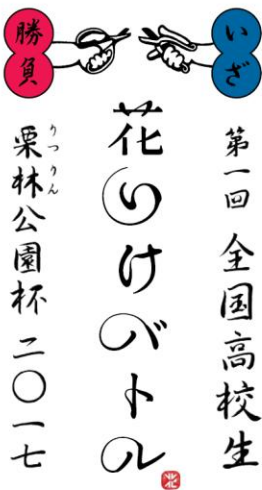 いざ
勝負
第一回 全国高校生
花いけバトル
栗林公園杯 二〇一七
りつりん